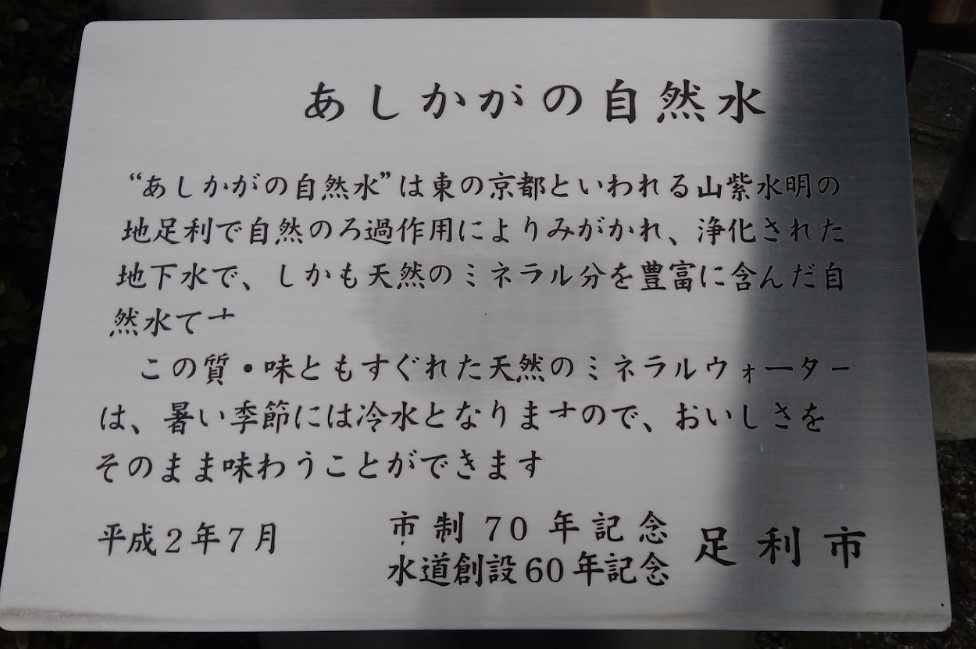 あしかがの自然水
“あしかがの自然水”は東の京都といわれる山紫水明の
地足利で自然のろ過作用によりみがかれ、浄化された
地下水で、しかも天然のミネラル分を豊富に含んだ自
然水です
この質・味ともすぐれた天然のミネラルウォーター
は、暑い季節には冷水となりますので、おいしさを
そのまま味わうことができます
平成2年7月
市制70年記念
水道創設60年記念
足利市